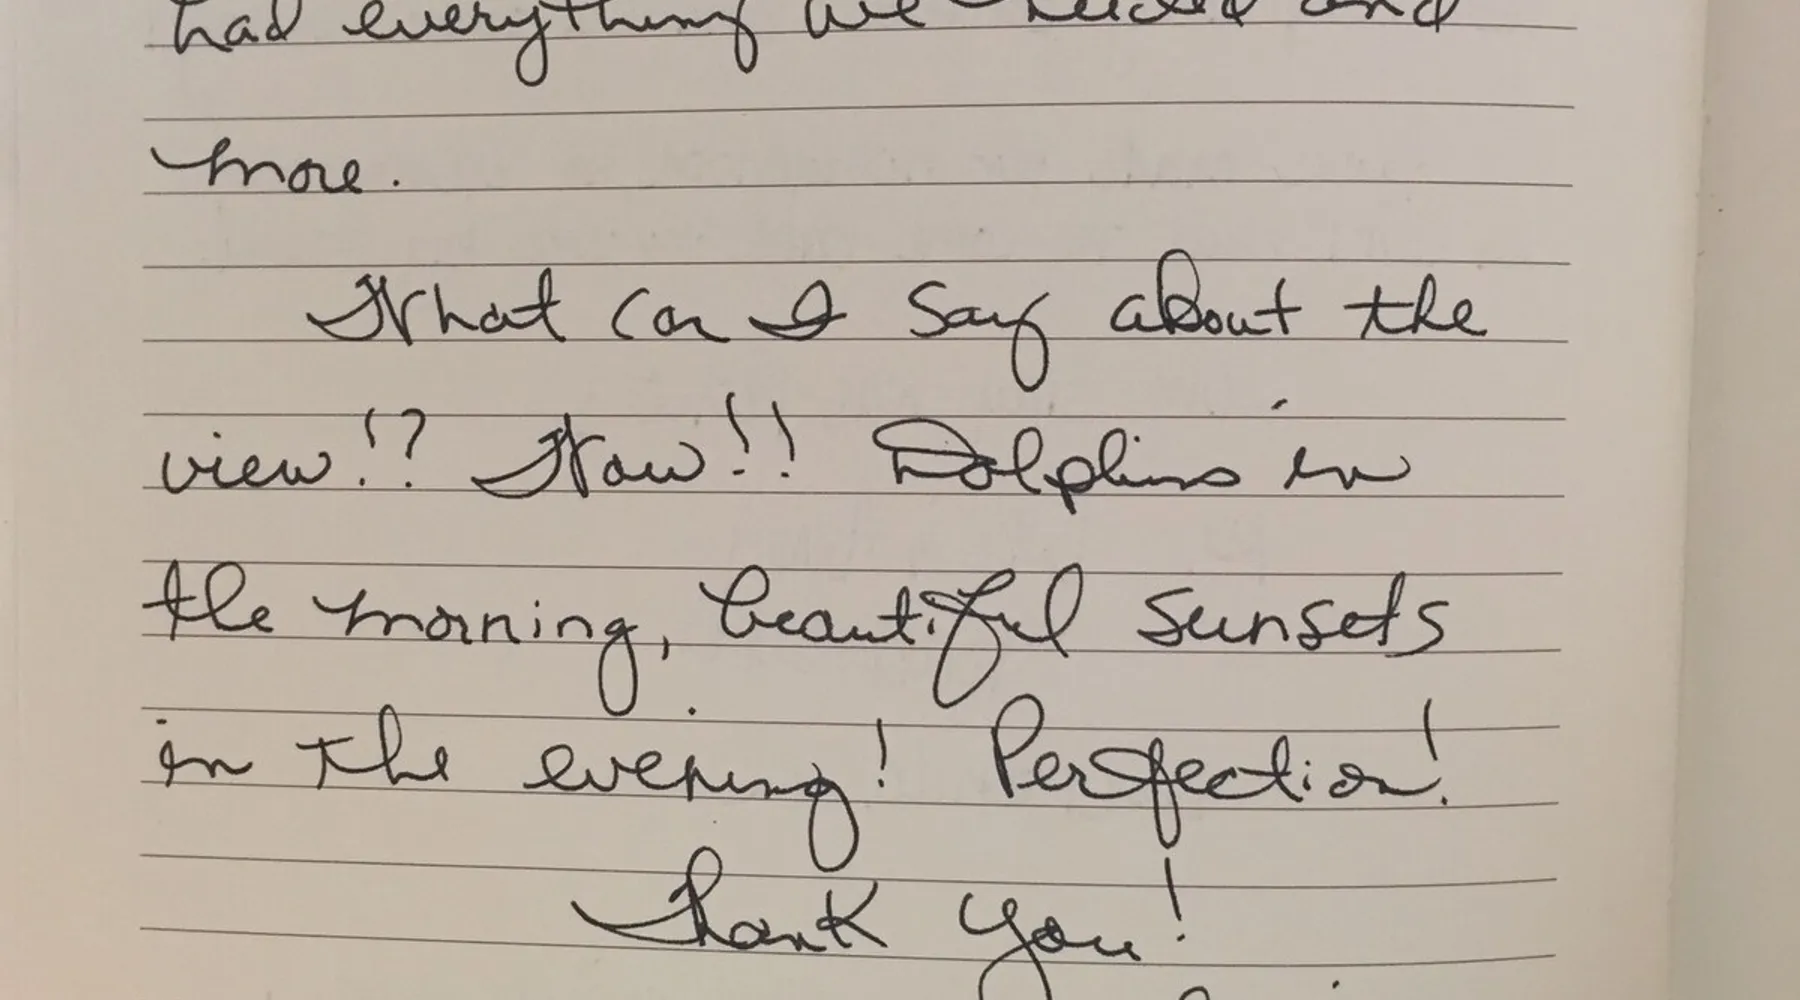 had everything we needed and
more.
What can I say about the
view!? Wow!! Dolphins in
the morning, beautiful sunsets
in the evening! Perfection!
Thank you!